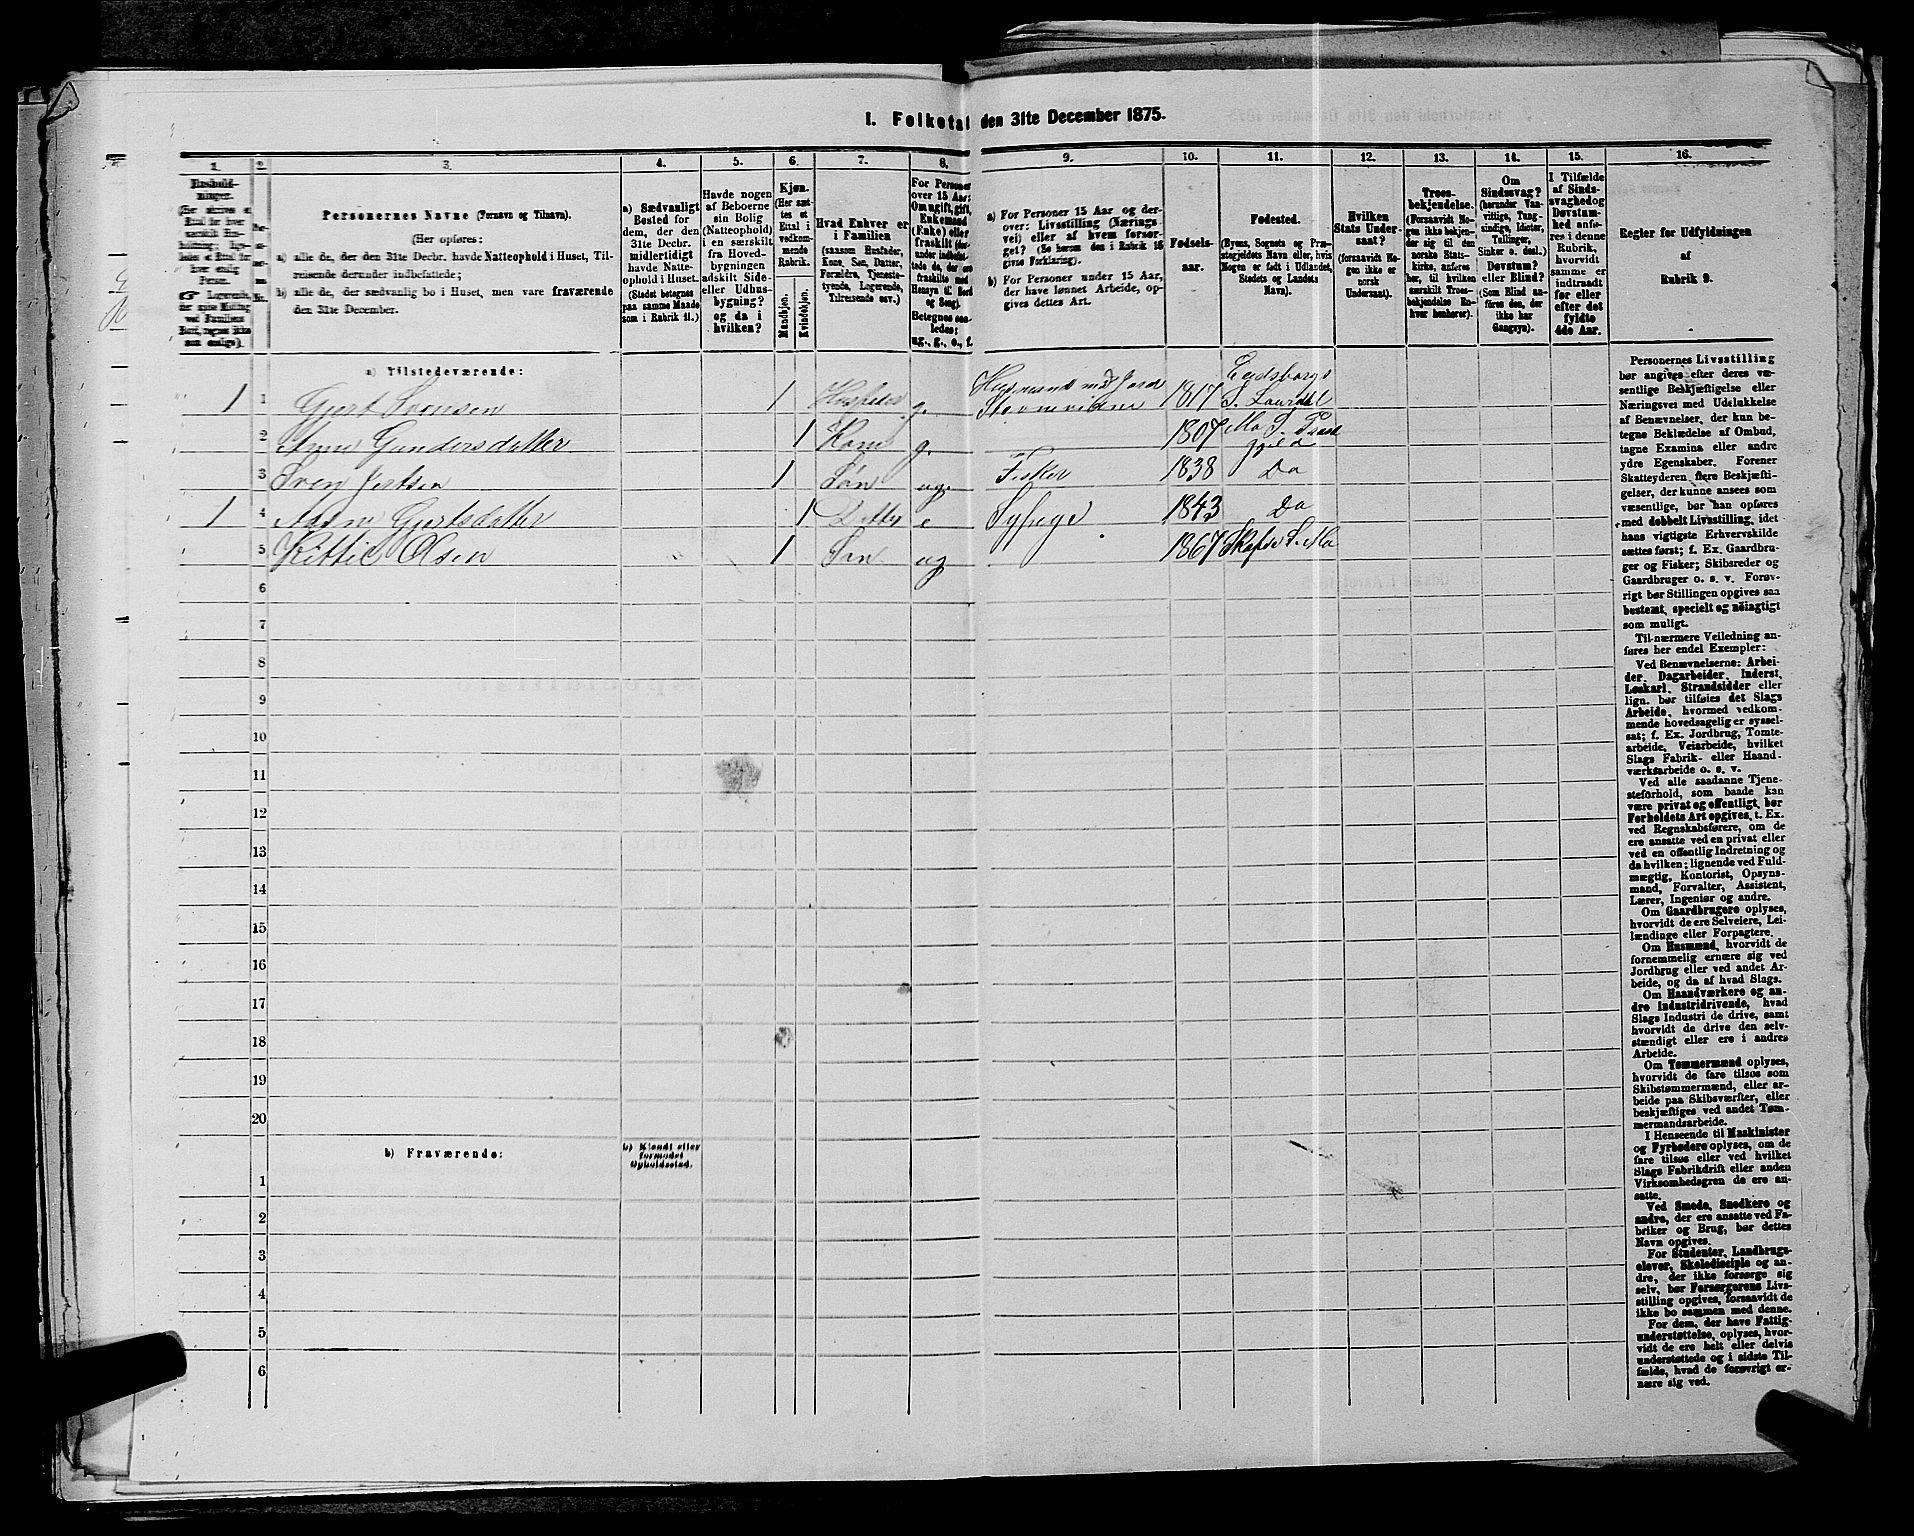 I. Folketal den 31te December 1875.
1. 2. 3. 4. 5. 6. 7. 8. 9. 10. 11. 12. 13. 14. 15. 16.
Personernes Navne (Fornavn og Tilnavn).
(Her opføres:
a) alle de, der den 31te Decbr. havde Natteophold i Huset, Til-
reisende derunder indbefattede;
b) alle de, der sædvanlig bo i Huset, men vare fraværende
den 31te December.
a) Sædvanligt
Bosted for
dem, der den
31te Decbr.
midlertidigt
havde Natte-
ophold i Huset.
(Stedet betegnes
paa samme Maade
som i Rubrik 11.)
Havde nogen
af Beboerne
sin Bolig
(Natteophold)
i en særskilt
fra Hoved-
bygningen
adskilt Side-
eller Udhus-
bygning?
og da i
hvilken?
Kjøn.
(Her sæt-
tes et
Ettal i
vedkom-
mende
Rubrik.
Mandkjøn.
Kvindekjøn.
Hvad Enhver er
i Familien
(saasom Husfader,
Kone, Søn, Datter,
Forældre, Tjeneste-
tyende, Logerende,
Tilreisende osv.)
For Personer
over 15 Aar:
Om ugift, gift,
Enkemand
(Enke) eller
fraskilt
Betegnes saa-
ledes:
ug., g., e., f.
a) For Personer 15 Aar og der-
over: Livsstilling (Nærings-
vei) eller af hvem forsør-
get? (Se herom den i Rubrik 16
givne Forklaring).
b) For Personer under 15 Aar,
der have lønnet Arbeide, op-
gives dettes Art.
Fødsels-
aar.
Fødested.
(Byens, Sognets og Præ-
stegjeldets Navn eller, hvis
Nogen er født i Udlandet,
Stedets og Landets
Navn).
Hvilken
Stats Under-
saat?
(forsaavidt No-
gen ikke er
norsk
Undersaat).
Troes-
bekjendelse.
(Forsaavidt No-
gen ikke bekjen-
der sig til den
norske Stats-
kirke, anføres
her, til hvilken
særskilt Troes-
bekjendelse En-
hver henhører).
Om
Sindssvag?
(herunder Van-
vittige, Tung-
sindige, Idioter,
Tullinger,
Sinker o. desl.)
Døvstum?
eller Blind?
(Som Blind an-
føres den, der
ikke har
Gangsyn).
I Tilfælde
af Sinds-
svaghed og
Døvstum-
hed anfø-
res i denne
Rubrik,
hvorvidt
samme er
indtraadt
før eller
efter det
fyldte
4de Aar.
Regler for Udfyldningen
af
Rubrik 9.
a) Tilstedeværende:
1 1 Gjert Svensen 1 Husfader g. Husmand med Jord 1817 Eidsborg S. Laurdal
2 Anne Gundersdatter 1 Kone g. 1807 Mo S. Præstegjeld
3 Sven Jertsen 1 Søn ug. Fisker 1838 Do
1 4 Gjertsdatter 1 Datter e 1843 Do
5 Kittil Olsen 1 Søn ug 1867 S. Mo
6
7
8
9
10
11
12
13
14
15
16
17
18
19
20
b) Fraværende:
b) Kjendt eller
formodet
Opholdssted.
1
2
3
4
5
6
Personernes Livsstilling
bør angives efter deres væ-
sentlige Beskjæftigelse eller
Næringsvei med Udelukkelse
af Benævnelser, der kun be-
tegne Beklædelse af Ombud,
tagne Examina eller andre
ydre Egenskaber. Forener
Skatteyderen flere Beskjæfti-
gelser, der kunne ansees som
væsentlige, bør han opføres
med dobbelt Livsstilling, idet
hans vigtigste Erhvervskilde
sættes først; f. Ex. Gaardbru-
ger og Fisker; Skibsreder og
Gaardbruger o. s. v. Forøv-
rigt bør Stillingen opgives saa
bestemt, specielt og nøiagtigt
som muligt.
Til nærmere Veiledning an-
føres her endel Exempler:
Ved Benævnelserne: Arbei-
der, Dagarbeider, Inderst,
Løskarl, Strandsidder eller
lign. bør tilføies det Slags
Arbeide, hvormed vedkom-
mende hovedsagelig er syssel-
sat; f. Ex. Jordbrug, Tomte-
arbeide, Veiarbeide, hvilket
Slags Fabrik- eller Haand-
værksarbeide o. s. v.
Ved alle saadanne Tjene-
steforhold, som baade kan
være privat og offentligt, bør
Forholdets Art opgives, t. Ex.
ved Regnskabsførere, om de
ere ansatte ved en privat eller
ved en offentlig Indretning og
da hvilken; lignende ved Fuld-
mægtig, Kontorist, Opsyns-
mand, Forvalter, Assistent,
Lærer, Ingeniør og andre.
Om Gaardbrugere oplyses,
hvorvidt de ere Selveiere, Lei-
lændinge eller Forpagtere.
Om Husmænd, hvorvidt de
fornemmelig ernære sig ved
Jordbrug eller ved andet Ar-
beide, og da af hvad Slags.
Om Haandværkere og an-
dre Industridrivende, hvad
Slags Industri de drive, samt
hvorvidt de drive den selv-
stændigt eller ere i andres
Arbeide.
Om Tømmermænd oplyses,
hvorvidt de fare tilsøs som
Skibstømmermænd, eller ar-
beide paa Skibsværfter, eller
beskjæftiges ved andet Tøm-
mermandsarbeide.
I Henseende til Maskinister
og Fyrbødere oplyses, om de
fare tilsøs eller ved hvilket
Slags Fabrikdrift eller anden
Virksomhedsgren de ere an-
satte.
Ved Smede, Snedkere og
andre, der ere ansatte ved Fa-
briker og Brug, bør dettes
Navn opgives.
For Studenter, Landbrugs-
elever, Skoledisciple og an-
dre, der ikke forsørge sig
selv, bør Forsørgerens Livs-
stilling opgives, forsaavidt de
ikke bo sammen med denne.
For dem, der have Fattig-
understøttelse, oplyses, hvor-
vidt de ere helt eller delvis
understøttede og i sidste Til-
fælde, hvad de forøvrigt er-
nære sig ved.